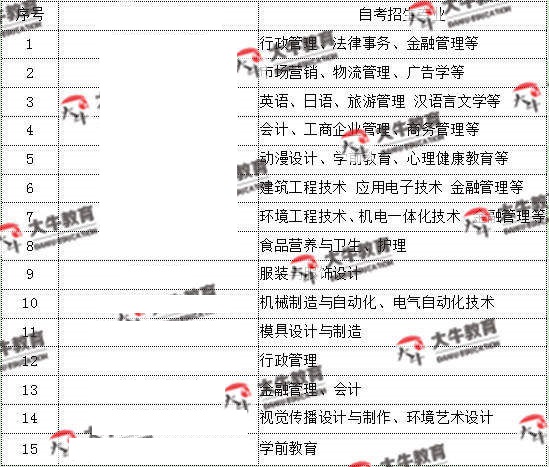 序号 自考招生专业
1 行政管理、法律事务、金融管理等
2 市场营销、物流管理、广告学等
3 英语、日语、旅游管理 汉语言文学等
4 会计、工商企业管理、商务管理等
5 动漫设计、学前教育、心理健康教育等
6 建筑工程技术 应用电子技术 金融管理等
7 环境工程技术、机电一体化技术、金融管理等
8 食品营养与卫生、护理
9 服装 设计
10 机械制造与自动化、电气自动化技术
11 模具设计与制造
12 行政管理
13 金融管理、会计
14 视觉传播设计与制作、环境艺术设计
15 学前教育
大牛教育
DANIU EDUCATION